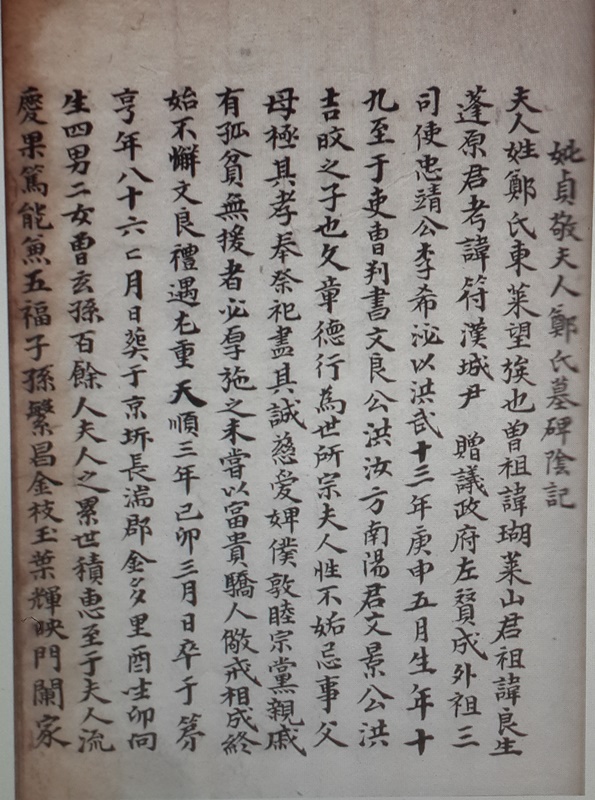 妣貞敬夫人鄭氏墓碑陰記
夫人姓鄭氏東萊望族也曾祖諱瑚萊山君祖諱良生
蓬原君考諱符漢城尹 贈議政府左賛成外祖三
司使忠靖公李希泌以洪武十三年庚申五月生年十
九至于吏曹判書文良公洪汝方南陽君文景公洪
吉旼之子也文章德行為世所宗夫人性不妬忌事父
母極其孝奉祭祀盡其誠慈愛婢僕敦睦宗黨親戚
有孤貧無援者必厚施之未嘗以富貴驕人儆戒相成終
始不懈文良禮遇尤重天順三年己卯三月日卒于第
享年八十六七月日葬于京圻長湍郡金多里酉坐卯向
生四男二女曾玄孫百餘人夫人之累世積惠至于夫人流
慶果篤能兼五福子孫繁昌金枝玉葉輝映門闌家